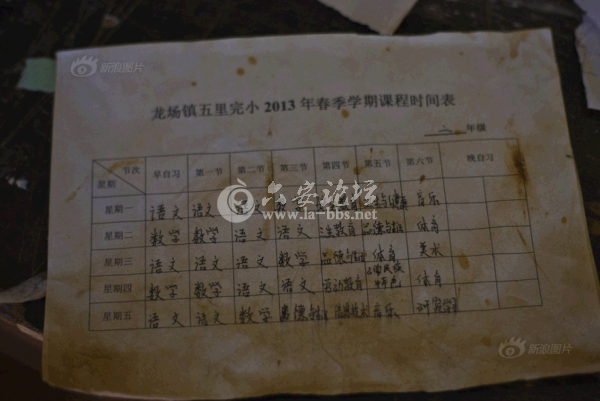 新浪图片
龙场镇五里完小2013年春季学期课程时间表
二 年级
节次 星期 早自习 第一节 第二节 第三节 第四节 第五节 第六节 晚自习
六安论坛
www.la-bbs.net
星期一 语文 语文 语文 数学 音乐
星期二 数学 数学 语文 语文 法制教育 品德与生活 体育
星期三 语文 语文 语文 数学 品德与生活 体育 美术
星期四 数学 数学 语文 语文 劳动教育 体育
星期五 语文 语文 数学 品德与生活 音乐
新浪图片